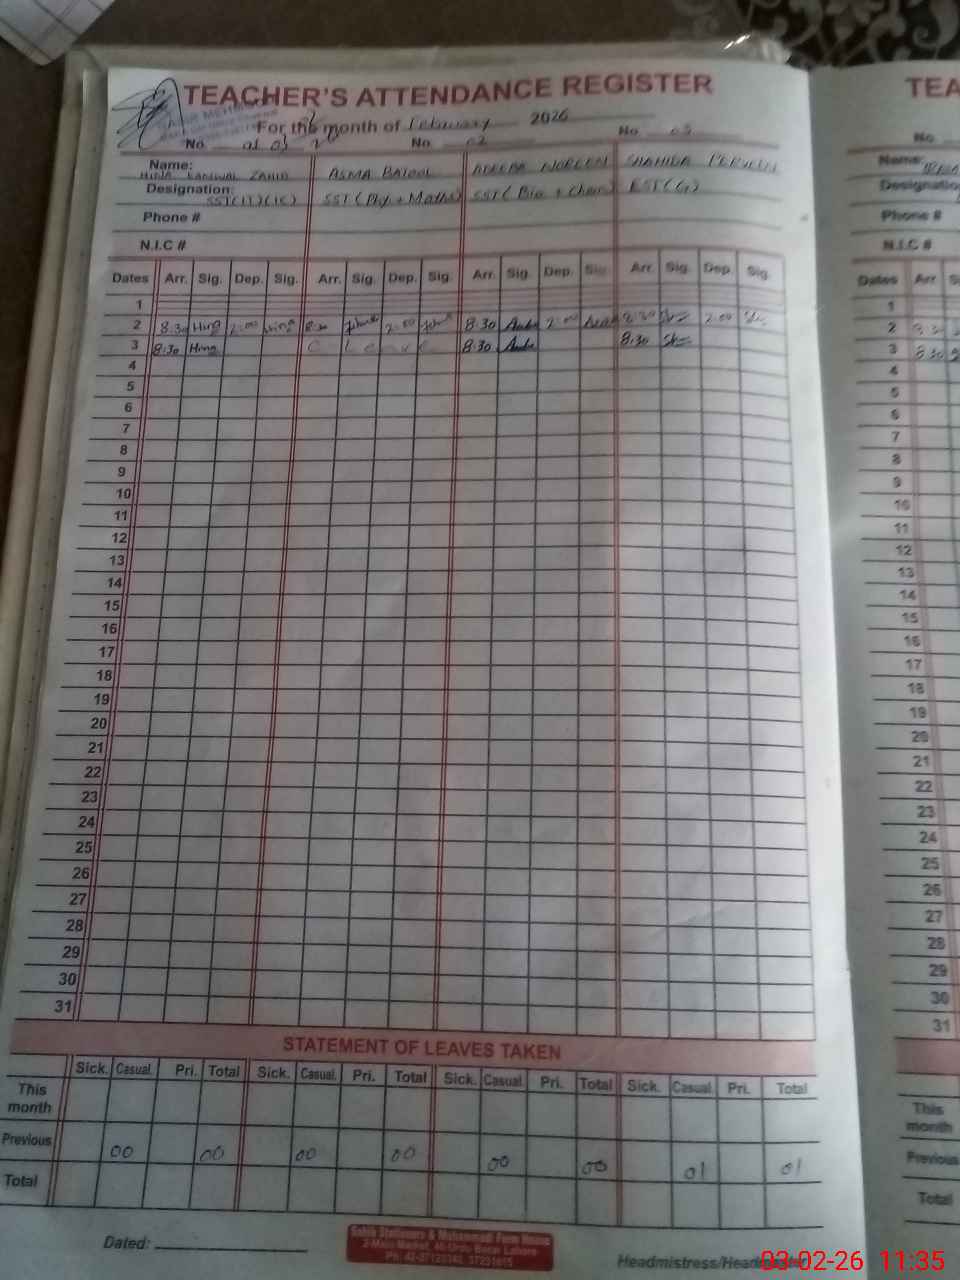 TEACHER'S ATTENDANCE REGISTER
For the month of February 2026
No. No. 02 No 03
Name: HINA KANWAL ZAHID ASMA BATOOL ADEEBA NOREEN SHAHIDA PERVEEN
Designation: SST(IT)(IC) SST (Phy + Maths) SST (Bio + Chem) EST(G)
Phone #
N.I.C #
Dates Arr. Sig. Dep. Sig. Arr. Sig. Dep. Sig. Arr. Sig. Dep. Sig. Arr. Sig. Dep. Sig.
1
2 8:30 Hina 2:00 Hina 8:30 2:00 8:30 2:00 8:30 2:00
3 8:30 Hina C Leave 8:30 8:30
4
5
6
7
8
9
10
11
12
13
14
15
16
17
18
19
20
21
22
23
24
25
26
27
28
29
30
31
STATEMENT OF LEAVES TAKEN
Sick. Casual. Pri. Total Sick. Casual. Pri. Total Sick. Casual. Pri. Total Sick. Casual. Pri. Total
This month
Previous 00 00 00 00 00 00 01 01
Total
Dated:
Headmistress/Headmaster
TEA
No
Name:
Designation
Phone #
N.I.C #
Dates Arr S
1
2
3 8:30
4
5
6
7
8
9
10
11
12
13
14
15
16
17
18
19
20
21
22
23
24
25
26
27
28
29
30
31
This month
Previous
Total
03-02-26 11:35